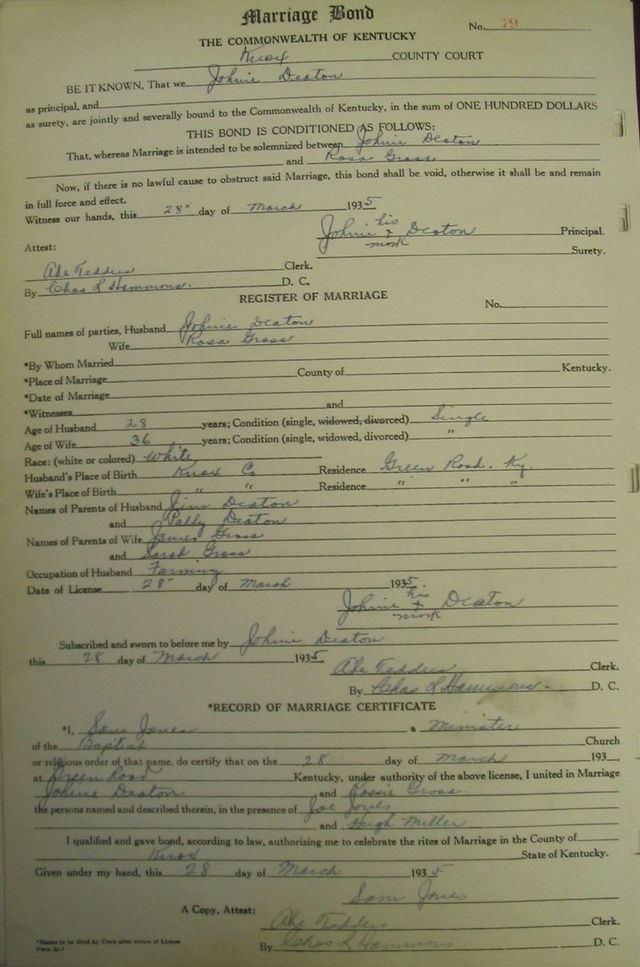 Marriage Bond
No. 79
THE COMMONWEALTH OF KENTUCKY
Knox COUNTY COURT
BE IT KNOWN, That we Johnie Deaton
as principal, and
as surety, are jointly and severally bound to the Commonwealth of Kentucky, in the sum of ONE HUNDRED DOLLARS
THIS BOND IS CONDITIONED AS FOLLOWS:
That, whereas Marriage is intended to be solemnized between Johnie Deaton
and Rosa Gross
Now, if there is no lawful cause to obstruct said Marriage, this bond shall be void, otherwise it shall be and remain
in full force and effect.
Witness our hands, this 28" day of March 1935
Johnie his x mark Deaton Principal.
Attest: Surety.
Abe Tedders Clerk.
By Chas L Hammons. D. C.
REGISTER OF MARRIAGE
No.
Full names of parties, Husband Johnie Deaton
Wife Rosa Gross
*By Whom Married
*Place of Marriage County of Kentucky.
*Date of Marriage
*Witnesses and
Age of Husband 28 years; Condition (single, widowed, divorced) Single
Age of Wife 36 years; Condition (single, widowed, divorced) "
Race: (white or colored) White
Husband's Place of Birth Knox Co Residence Green Road. Ky.
Wife's Place of Birth " " Residence " " "
Names of Parents of Husband Jim Deaton
and Pally Deaton
Names of Parents of Wife James Gross
and Sarah Gross
Occupation of Husband Farming
Date of License 28" day of March 1935.
Johnie his x mark Deaton
Subscribed and sworn to before me by Johnie Deaton
this 28 day of March 1935
Abe Tedders Clerk.
By Chas L Hammons. D. C.
*RECORD OF MARRIAGE CERTIFICATE
*I, Sam Jones a Minister
of the Baptist Church
or religious order of that name, do certify that on the 28 day of March 193
at Green Road Kentucky, under authority of the above license, I united in Marriage
Johnie Deaton and Rossie Gross.
the persons named and described therein, in the presence of Joe Jones
and Hugh Miller
I qualified and gave bond, according to law, authorizing me to celebrate the rites of Marriage in the County of
Knox State of Kentucky.
Given under my hand, this 28 day of March 1935
Sam Jones
A Copy, Attest:
Abe Tedders Clerk.
By Chas L Hammons D. C.
*Blanks to be filled by Clerk after return of License